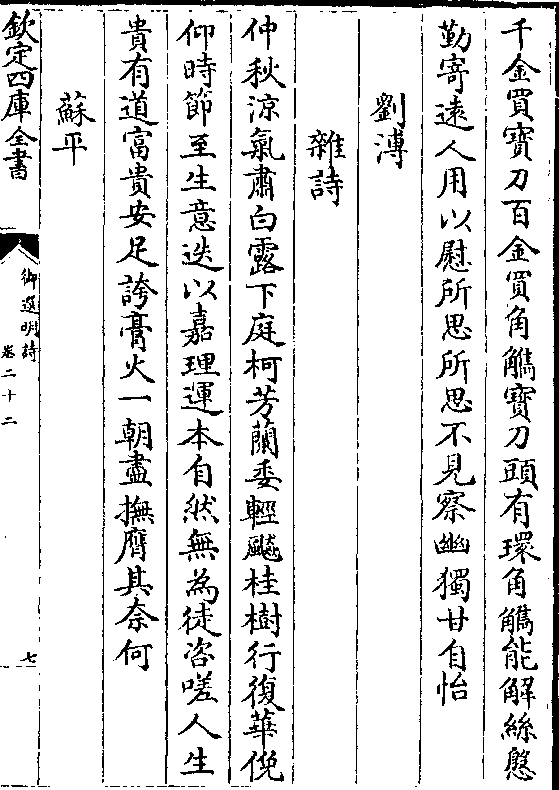 千金買寶刀百金買角觿寶刀頭有環角觿能解絲慇
勤寄遠人用以慰所思所思不見察幽獨甘自怡
劉溥
雜詩
仲秋涼氣肅白露下庭柯芳蘭委輕飇桂樹行復華俛
仰時節至生意迭以嘉理運本自然無為徒咨嗟人生
貴有道富貴安足誇膏火一朝盡撫膺其奈何
蘇平
欽定四庫全書
御選明詩
卷二十二
七